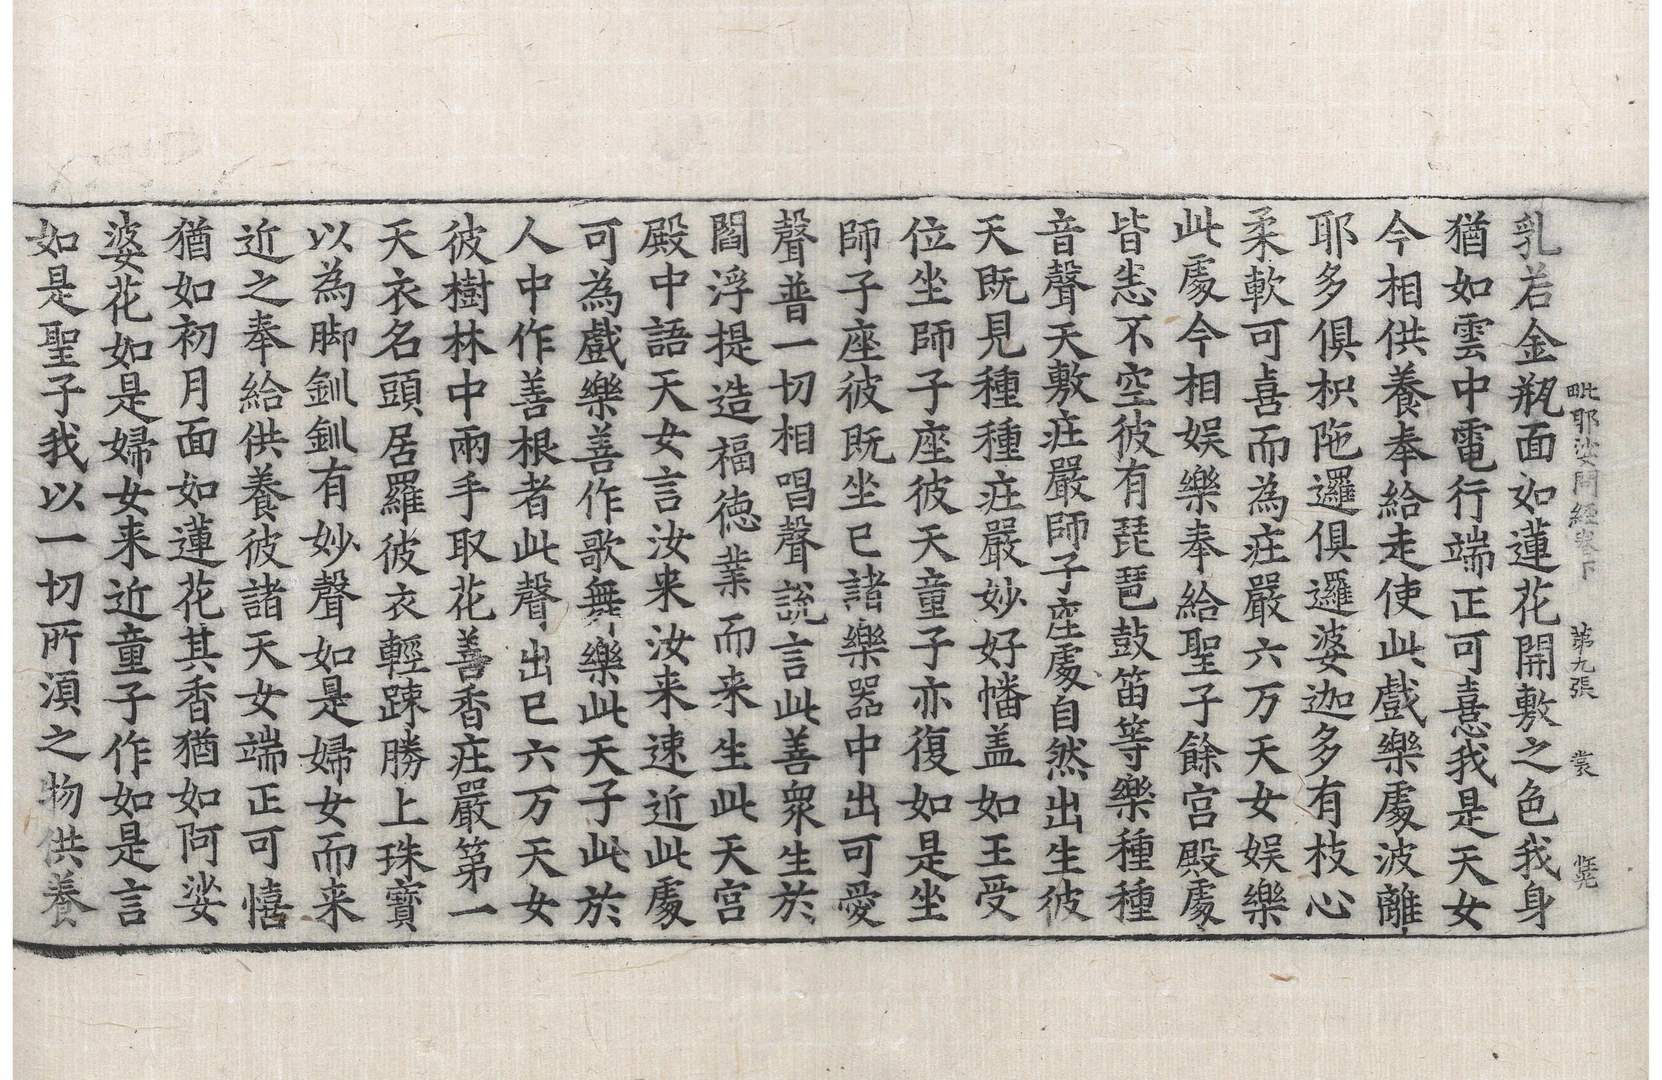 毗耶娑問經卷下　第九張　裳
乳若金瓶面如蓮花開敷之色我身
猶如雲中電行端正可憙我是天女
今相供養奉給走使此戲樂處波離
耶多俱枳陁邏俱邏婆迦多有枝心
柔軟可喜而為庄嚴六万天女娛樂
此處今相娛樂奉給聖子餘宫殿處
皆恙不空彼有琵琶鼓笛等樂種種
音聲天敷庄嚴師子座處自然出生彼
天既見種種庄嚴妙好幡盖如王受
位坐師子座彼天童子亦復如是坐
師子座彼既坐已諸樂器中出可愛
聲普一切相唱聲說言此善衆生於
閻浮提造福德業而来生此天宫
殿中語天女言汝来汝来速近此處
可為戲樂善作歌舞樂此天子此於
人中作善根者此聲出已六万天女
彼樹林中兩手取花善香庄嚴第一
天衣名頭居羅彼衣輕踈勝上珠寶
以為脚釧釧有妙聲如是婦女而来
近之奉給供養彼諸天女端正可憘
猶如初月面如蓮花其香猶如阿娑
婆花如是婦女来近童子作如是言
如是聖子我以一切所湏之物供養